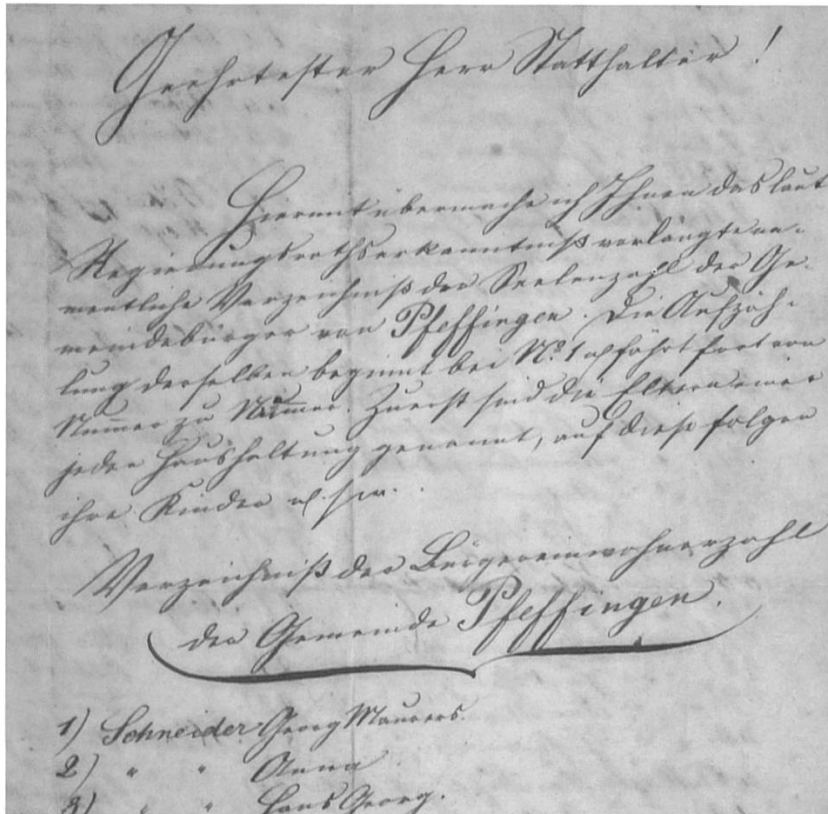 Geehrtester Herr Statthalter!
Hiermit übermache ich Ihnen das laut
Regierungsrathserkanntniß verlangte na-
mentliche Verzeichniß der Seelenzahl der Ge-
meindebürger von Pfeffingen. Die Aufzäh-
lung derselben beginnt bei No. 1 & fährt fort von
Numer zu Numer. Zuerst sind die Eltern einer
jeden Haushaltung genannt, auf diese folgen
ihre Kinder u. s. w.
Verzeichniß der Bürgereinwohnerzahl
der Gemeinde Pfeffingen.
1) Schneider Georg Maurers.
2) " " Anna
3) " " Hans Georg.